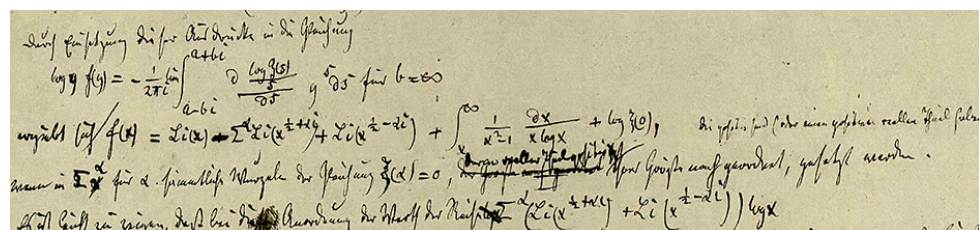 Durch Einsetzung dieser Ausdrücke in die Gleichung
log y f(y) = - 1/2πi lim ∫_{a-bi}^{a+bi} d (log ζ(s)/s)/ds y^s ds für b = ∞
ergibt sich f(x) = Li(x) - Σ^α Li(x^{½+αi}) + Li(x^{½-αi}) + ∫_x^∞ 1/(x²-1) dx/(x log x) + log ξ(0),
wenn in Σ^α für α sämmtliche Wurzeln der Gleichung ξ(α) = 0, ihrer Größe nach geordnet, gesetzt werden.
Es ist leicht zu zeigen, daß bei dieser Anordnung der Werth der Reihe Σ^α (Li(x^{½+αi}) + Li(x^{½-αi})) log x